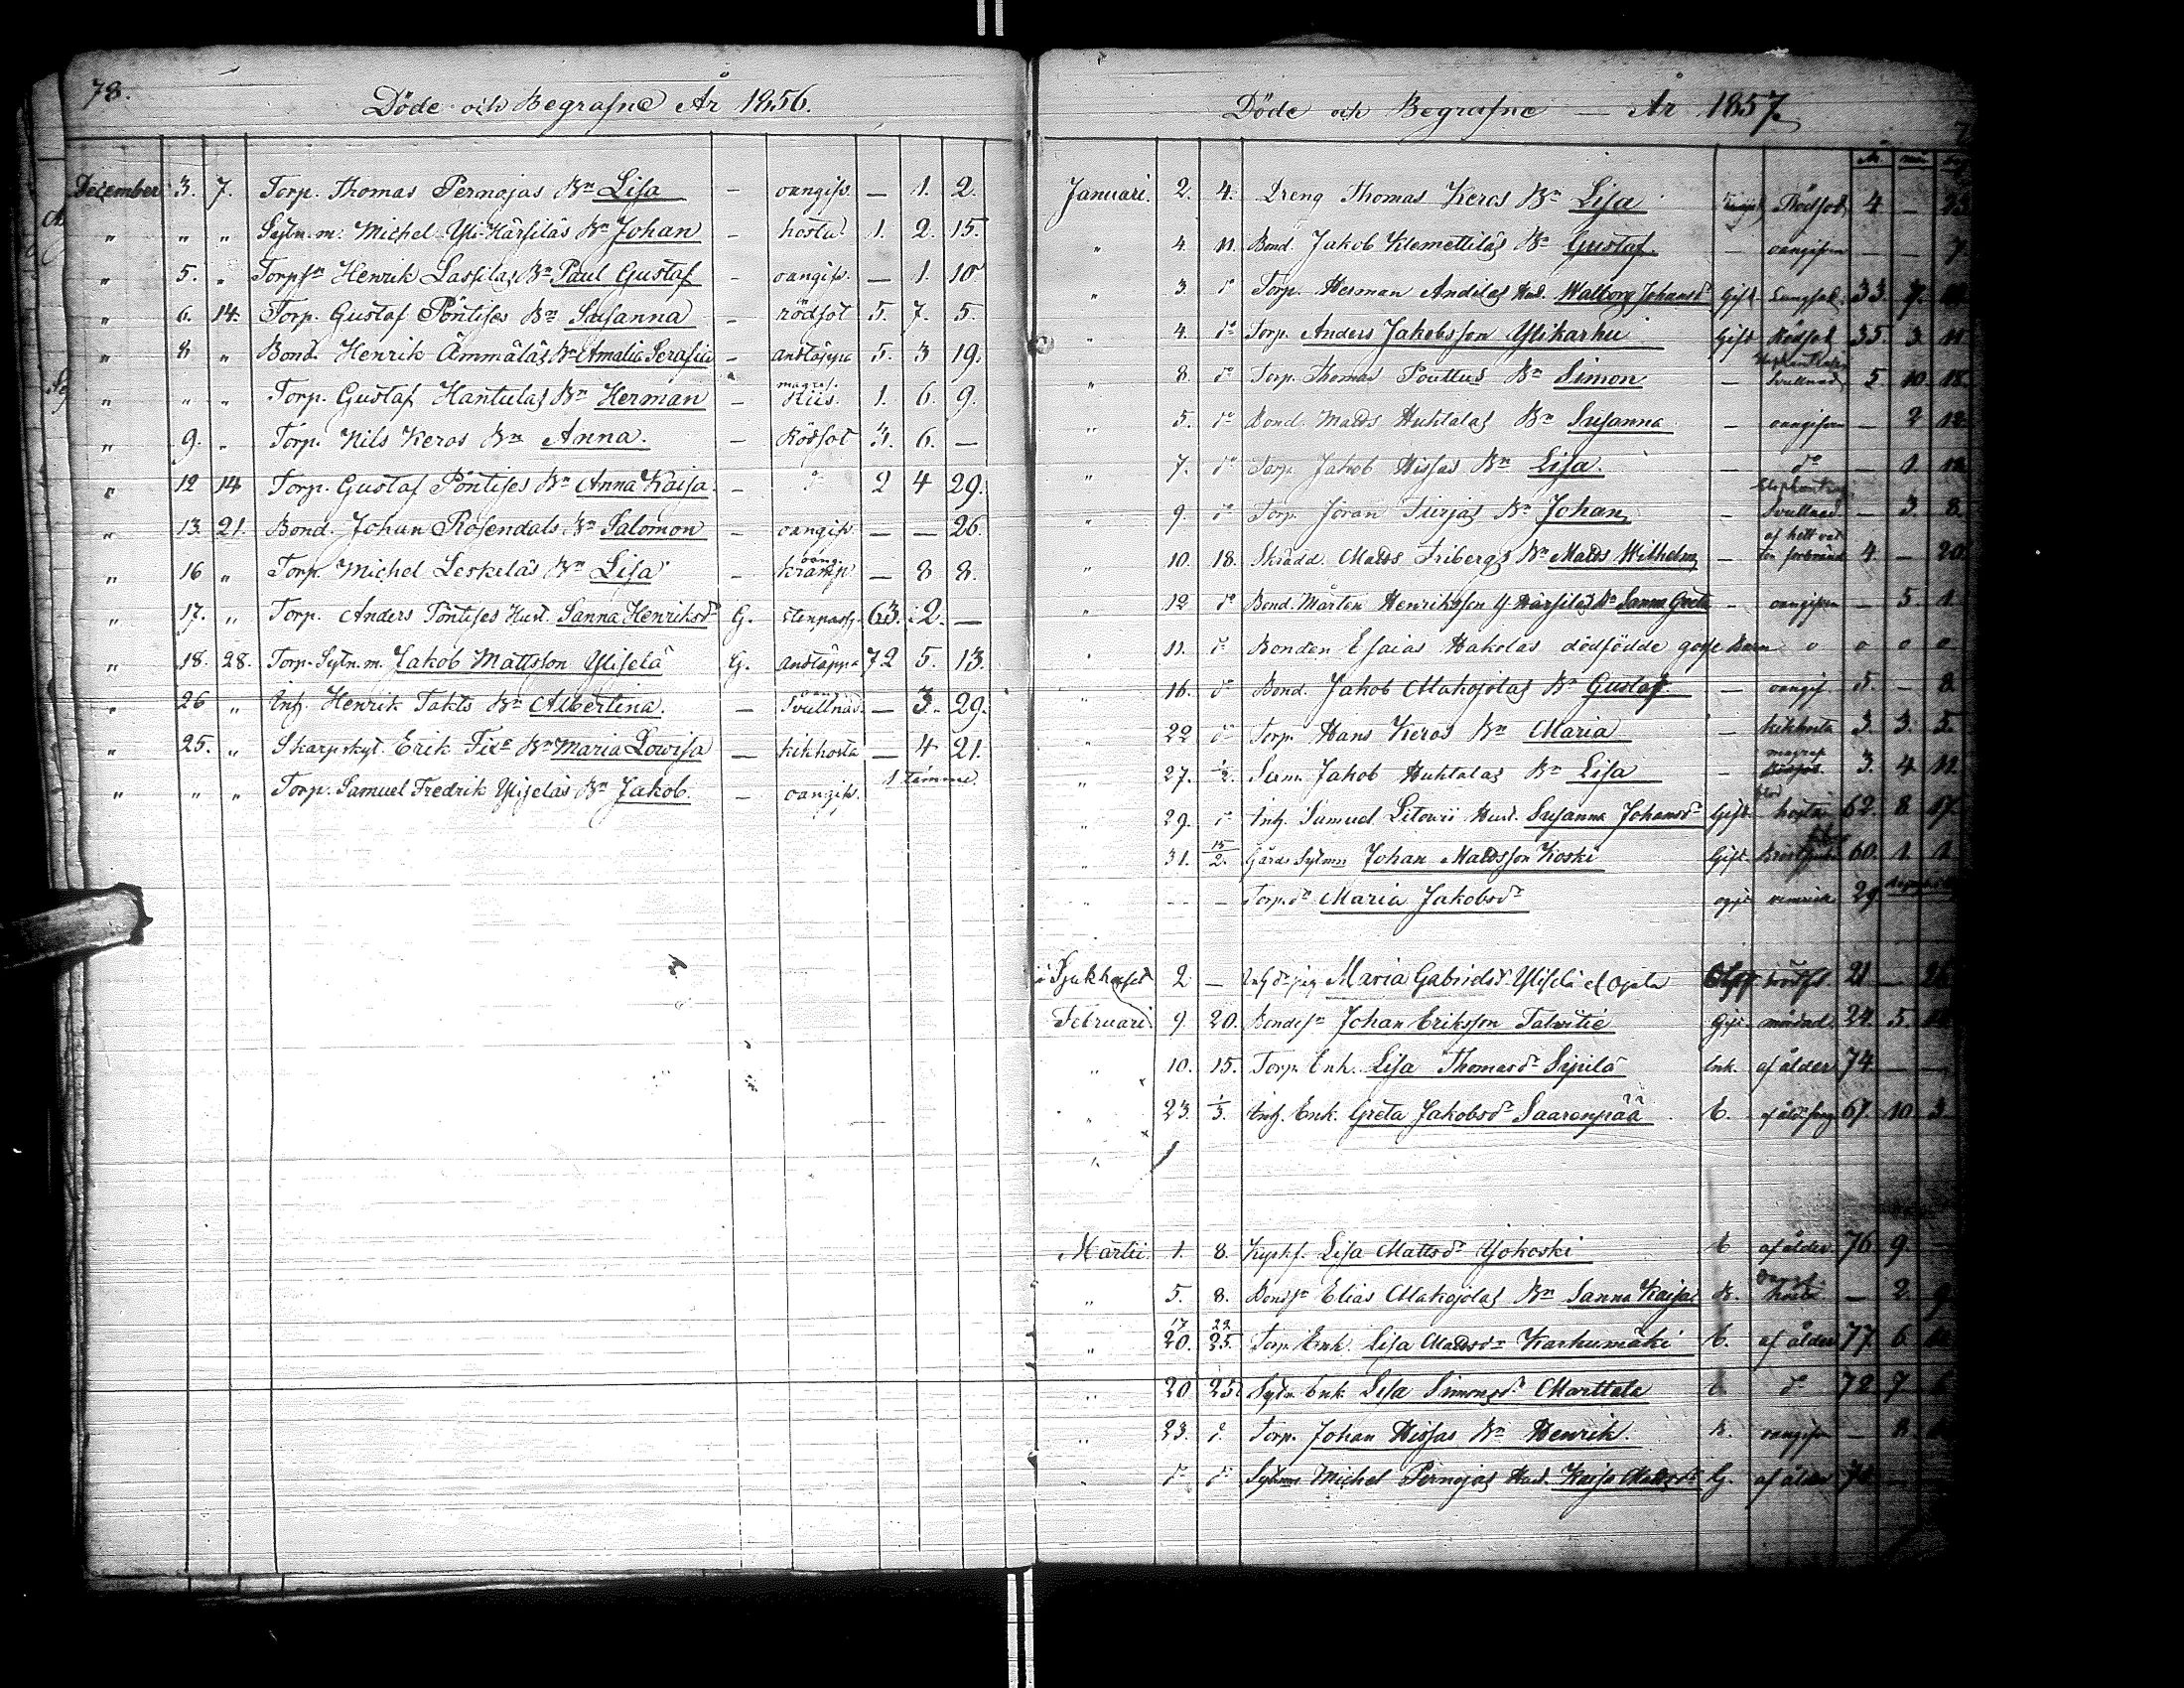 78.
Döde och Begrafne År 1856.
December 3. 7. Torp. Thomas Pernajas Bn Lisa — oangifv. — 1. 2.
" " " Sytn. m. Michel Yli-Härsiläs Bn Johan — hosta 1. 2. 15.
" 5. " Henrik Lassilas Bn Paul Gustaf — oangifv. — 1. 10
" 6. 14. Torp. Gustaf Pöntises Bn Susanna — rödsot 5. 7. 5.
" 8 " Bond. Henrik Ämmäläs Bn Amalia Serafia — andtäppa 5. 3 19.
" " " Torp. Gustaf Hantulas Bn Herman — 1. 6. 9.
" 9. " Torp. Nils Keros Bn Anna. — Rödsot 3. 6. —
" 12 14 Torp. Gustaf Pöntises Bn Anna Kaisa — do 2 4 29.
" 13. 21. Bond. Johan Rosendals Bn Salomon — oangifv. — — 26.
" 16 " Torp. Michel Leskelas Bn Lisa — kramp — 8 8.
" 17. " Torp. Anders Pöntises Hust. Sanna Henriksdr G. 63. 2. —
" 18. 28. Torp. Sytn. m. Jakob Mattsson Ylisela G. andtäppa 72 5. 13.
" 26 " Inh. Henrik Takts Bn Albertina. — Svullnad — 3. 29.
" 25. " Skarpskyt. Erik Bn Maria Lowisa — kikhosta — 4 21.
" " " Torp. Samuel Fredrik Yliseläs Bn Jakob. — oangifv. 1 timme
Döde och Begrafne — År 1857.
Januari. 2. 4. Dreng Thomas Keros Bn Lisa Rödsot 4 — 23
" 4. 11. Bond. Jakob Klemettiläs Bn Gustaf. — oangifven — — 7
" 3. do Torp. Herman Hust. Walborg Johansdr Gift Lungsot 33. 7.
" 4. do Torp. Anders Jakobsson Ylikarhu Gift Rödsot 35. 3. 11
" 8. do Torp. Thomas Pouttus Bn Simon — Svullnad 5 10. 18.
" 5. do Bond. Matts Huhtalas Bn Susanna — oangifven — 2 12
" 7. do Torp. Jakob Hissas Bn Lisa. — do — 1.
" 9. do Torp. Jöran Bn Johan — Svullnad — 3. 8.
" 10. 18. Skrädd. Matts Fribergs Bn Matts Wilhelm — af hett vatten förbränd 4. — 20.
" 12 do Bond. Mårten Henriksson Y. Härsiläs Bn Sanna Greta — oangifven — 5. 1
" 11. do Bonden Esaias Hakolas dödfödde gosse Barn o o o o
" 16. do Bond. Jakob Makojolas Bn Gustaf. — oangif. 5. — 8
" 22 do Torp. Hans Keros Bn Maria — kikhosta 3. 3. 5.
" 27. 1/2. Jakob Huhtalas Bn Lisa — 3. 4
" 29. do Inh. Samuel Hust. Susanna Johansdr Gift. blod hosta 62. 8. 17.
" 31. 15/2. Johan Mattsson Koski Gift. 60. 1. 1
" — — Torp.dr Maria Jakobsdr ogift 29
i Sjukhuset 2 — Maria Gabrielsd. Ylisela el Ojala 21 —
Februari. 9. 20. Bondes. Johan Eriksson Talvitie Gift mördad 24. 5.
" 10. 15. Torp. Enk. Lisa Thomasdr Sipilä Enk. af ålder 74. — —
" 23. 1/3. Inh. Enk. Greta Jakobsdr Saarenpää E. 67. 10. 3.
"
Martii. 1. 8. Lisa Mattsdr Yokoski E af ålder 76 9.
" 5. 8. Elias Makojolas Bn Sanna Kaisa B. hosta — 2. 9
17 22
" 20. 25. Torp. Enk. Lisa Mattsdr Karhumäki E. af ålder 77. 6.
" 20 25 Sytn. Enk Lisa Simonsdr Marttala E do 72 7
" 23. do Torp. Johan Hissas Bn Henrik. B. oangifven — 8
" do do Michel Pernajas Hust. Kaisa Mattsdr G. af ålder